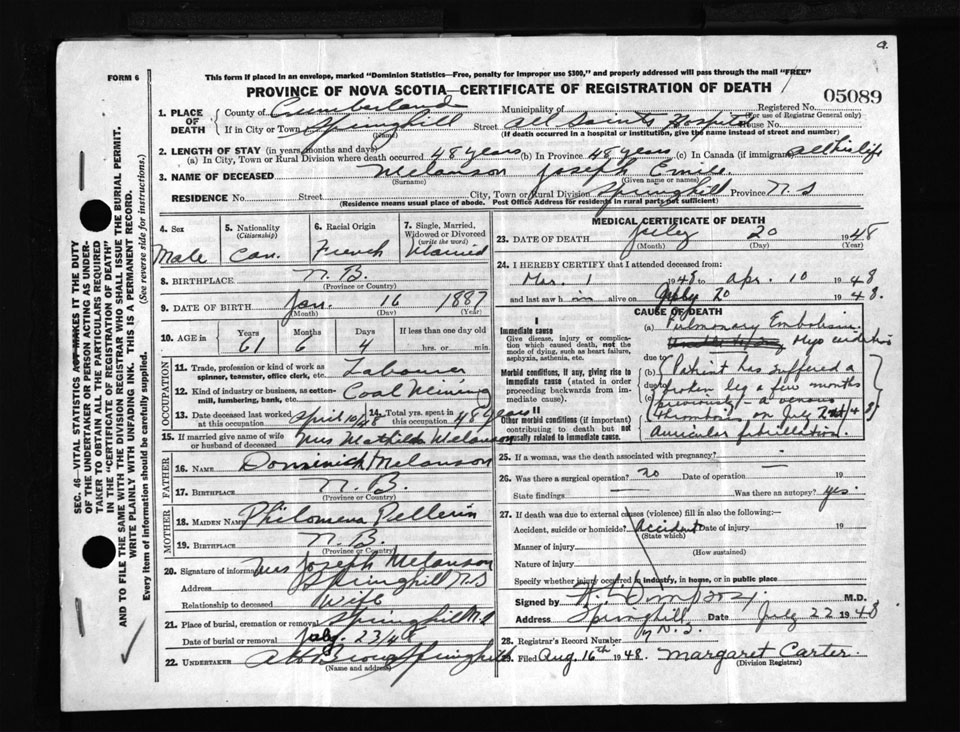 FORM 6
This form if placed in an envelope, marked "Dominion Statistics—Free, penalty for improper use $300," and properly addressed will pass through the mail "FREE"
PROVINCE OF NOVA SCOTIA—CERTIFICATE OF REGISTRATION OF DEATH
05089
1. PLACE OF DEATH
County of Cumberland Municipality of Registered No.
(For use of Registrar General only)
If in City or Town Springhill Street All Saints Hospital House No.
(Name) (If death occurred in a hospital or institution, give the name instead of street and number)
2. LENGTH OF STAY (in years, months and days)
(a) In City, Town or Rural Division where death occurred 48 years (b) In Province 48 years (c) In Canada (if immigrant) all his life
3. NAME OF DECEASED Melanson Joseph Emile
(Surname) (Given name or names)
RESIDENCE No. Street City, Town or Rural Division Springhill Province N.S
(Residence means usual place of abode. Post Office Address for residents in rural parts not sufficient)
4. Sex
Male
5. Nationality
(Citizenship)
Can.
6. Racial Origin
French
7. Single, Married, Widowed or Divorced
(write the word)
Married
8. BIRTHPLACE N.B.
(Province or Country)
9. DATE OF BIRTH Jan. 16 1887
(Month) (Day) (Year)
10. AGE in Years Months Days If less than one day old
61 6 4 hrs. or min.
OCCUPATION
11. Trade, profession or kind of work as spinner, teamster, office clerk, etc. Labourer
12. Kind of industry or business, as cotton-mill, lumbering, bank, etc. Coal Mining
13. Date deceased last worked at this occupation April 10/48
14. Total yrs. spent in this occupation 48 years
15. If married give name of wife or husband of deceased Mrs Mathilda Melanson
FATHER
16. NAME Dominick Melanson
17. BIRTHPLACE N.B.
(Province or Country)
MOTHER
18. MAIDEN NAME Philomena Pellerin
19. BIRTHPLACE N.B.
(Province or Country)
20. Signature of informant Mrs Joseph Melanson
Address Springhill N.S
Relationship to deceased Wife
21. Place of burial, cremation or removal Springhill N.S
Date of burial or removal July 23/48
22. UNDERTAKER Springhill
(Name and address)
MEDICAL CERTIFICATE OF DEATH
23. DATE OF DEATH July 20 1948
(Month) (Day) (Year)
24. I HEREBY CERTIFY that I attended deceased from:
Mar. 1 1948 to Apr. 10 1948
and last saw him alive on July 20 1948.
CAUSE OF DEATH
I
Immediate cause
Give disease, injury or complication which caused death, not the mode of dying, such as heart failure, asphyxia, asthenia, etc.
(a) Pulmonary Embolism
Myocarditis
due to
Morbid conditions, if any, giving rise to immediate cause (stated in order proceeding backwards from immediate cause).
(b) Patient has suffered a
due to broken leg a few months
previously — a venous
II
Other morbid conditions (if important) contributing to death but not causally related to immediate cause.
thrombosis on July 48
auricular fibrillation.
25. If a woman, was the death associated with pregnancy?
26. Was there a surgical operation? no Date of operation 19
State findings Was there an autopsy? yes.
27. If death was due to external causes (violence) fill in also the following:—
Accident, suicide or homicide? Accident Date of injury 19
(State which)
Manner of injury
(How sustained)
Nature of injury
Specify whether injury occurred in industry, in home, or in public place
Signed by M.D.
Address Springhill Date July 22 1948
N.S.
28. Registrar's Record Number
29. Filed Aug. 16th 1948. Margaret Carter.
(Division Registrar)
SEC. 46—VITAL STATISTICS ACT MAKES IT THE DUTY OF THE UNDERTAKER OR PERSON ACTING AS UNDERTAKER TO OBTAIN ALL THE PARTICULARS REQUIRED IN THE "CERTIFICATE OF REGISTRATION OF DEATH" AND TO FILE THE SAME WITH THE DIVISION REGISTRAR WHO SHALL ISSUE THE BURIAL PERMIT.
WRITE PLAINLY WITH UNFADING INK. THIS IS A PERMANENT RECORD.
Every item of information should be carefully supplied. (See reverse side for instructions.)